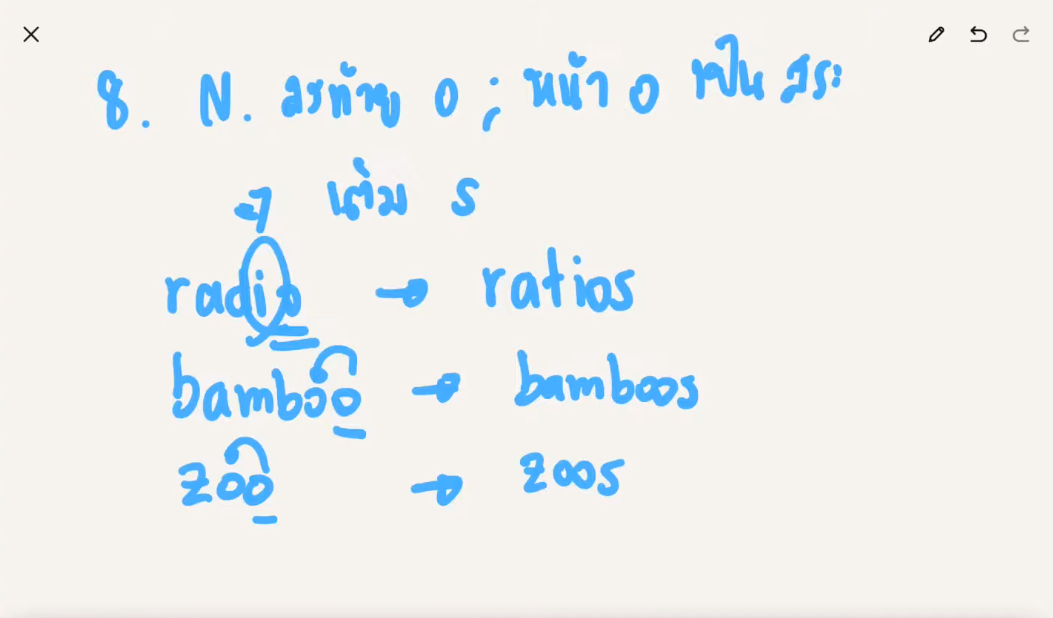 8. N. ลงท้าย o ; หน้า o เป็น สระ
→ เติม s
radio → ratios
bamboo → bamboos
zoo → zoos